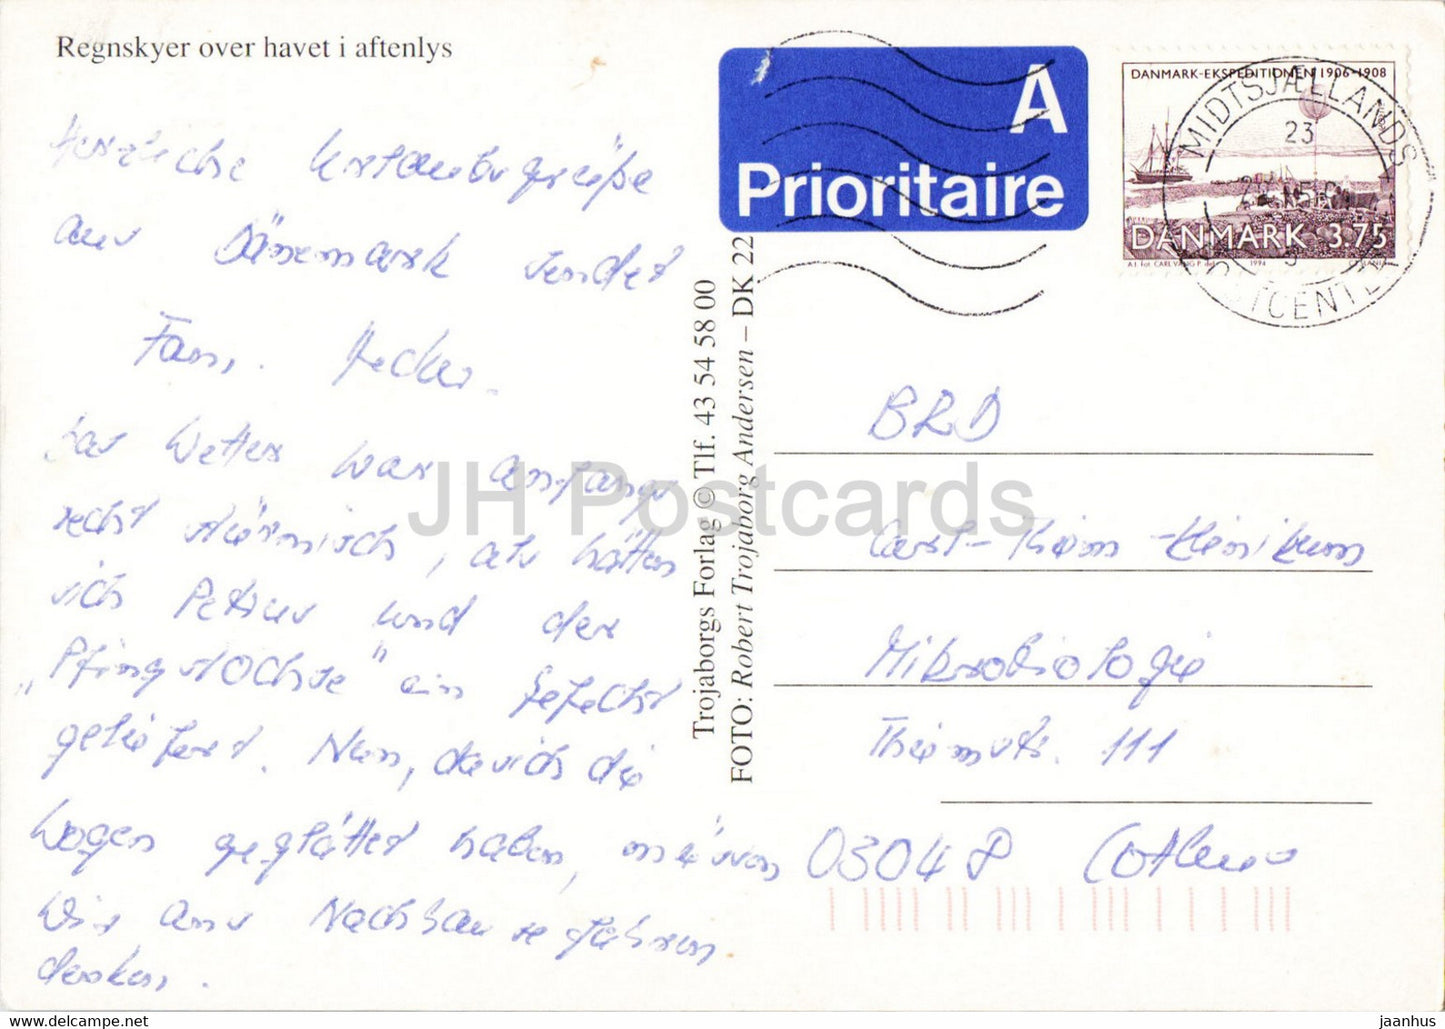 Regnskyer over havet i aftenlys
Herzliche Urlaubsgrüße
aus Dänemark sendet
Fam. Hecker.
Das Wetter war anfangs
recht stürmisch, als hätten
sich Petrus und der
„Pfingstochse“ ein Gefecht
geliefert. Nun, da sich die
Wogen geglättet haben, müssen
wir ans Nachhausefahren
denken.
Trojaborgs Forlag © Tlf. 43 54 58 00
FOTO: Robert Trojaborg Andersen – DK 22
A
Prioritaire
DANMARK-EKSPEDITIONEN 1906-1908
DANMARK 3.75
1994
MIDTSJÆLLANDS
23
POSTCENTER
BRD
Carl-Thiem-Klinikum
Mikrobiologie
Thiemstr. 111
03048 Cottbus
JH Postcards
https://www.jhpostcards.com
jaanhus